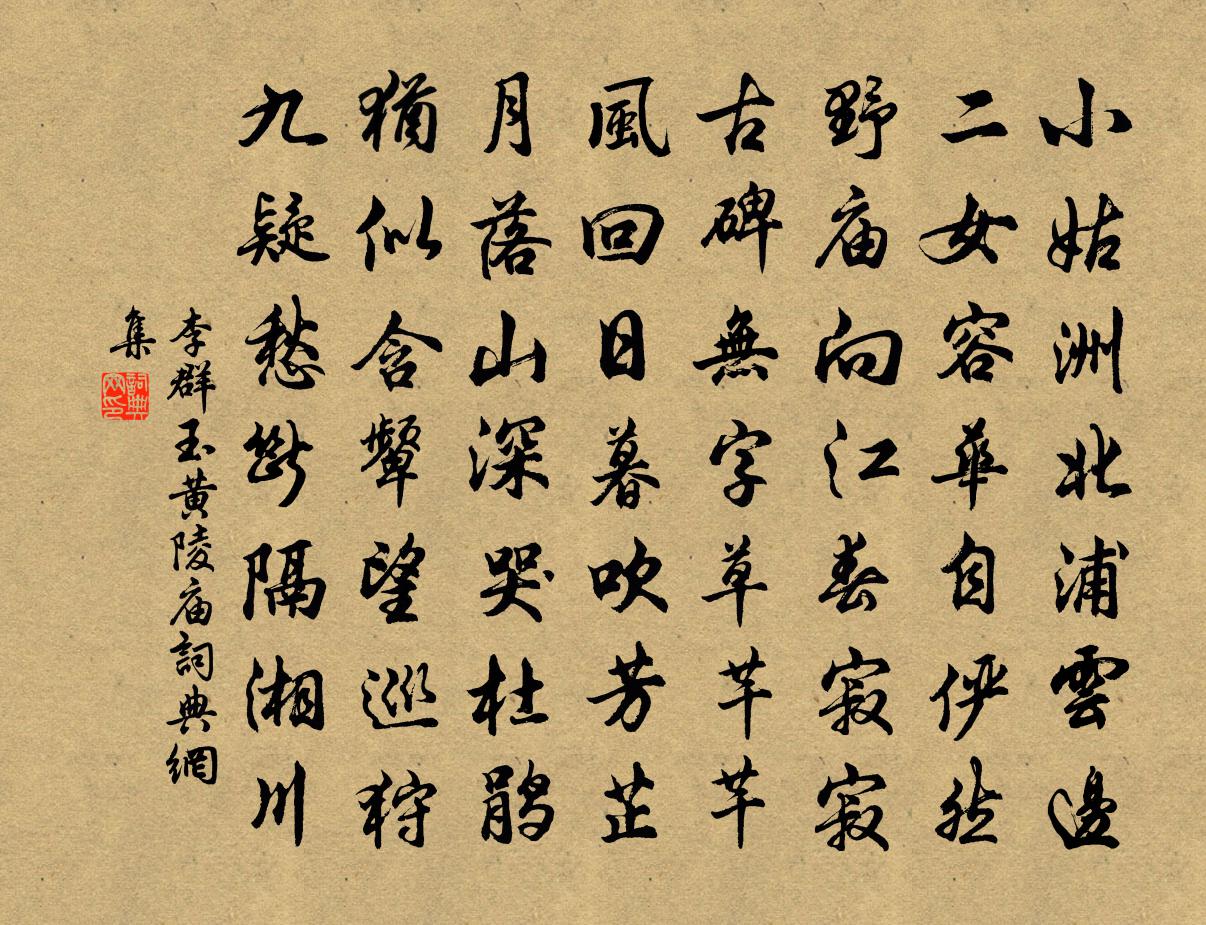 小姑洲北浦雲邊
二女容華自俨然
野庙向江春寂寂
古碑無字草芊芊
風回日暮吹芳芷
月落山深哭杜鹃
猶似含顰望巡狩
九疑愁断隔湘川
李群玉黄陵庙詞典網
集
詞典網印